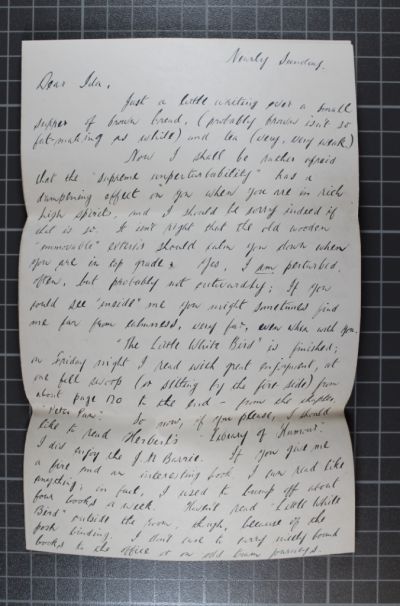 Nearly Sunday.
Dear Ida,
Just a little writing over a small
supper of brown bread, (probably brown isn't so
fat-making as white) and tea (very, very weak)
Now I shall be rather afraid
that the "supreme imperturbability" has a
dampening effect on you when you are in rich
high spirits, and I should be sorry indeed if
that is so. It isn't right that the old wooden
"immovable" exterior should calm you down when
you are in top grade. Yes, I am perturbed,
often, but probably not outwardly; If you
could see "inside" me you might sometimes find
me far from calmness, very far, even when with you.
"The Little White Bird" is finished;
on Friday night I read with great enjoyment, at
one fell swoop (or sitting by the fire side) from
about page 130 to the end - from the chapter,
"Peter Pan". So now, if you please, I should
like to read Herbert's "Library of Humour."
I did enjoy the J M Barrie. If you give me
a fire and an interesting book, I can read like
anything; in fact, I used to bump off about
four books a week. Haven't read "Little White
Bird" outside the room, though, because of the
posh binding. I don't care to carry nicely bound
books to the office or on old tram journeys.